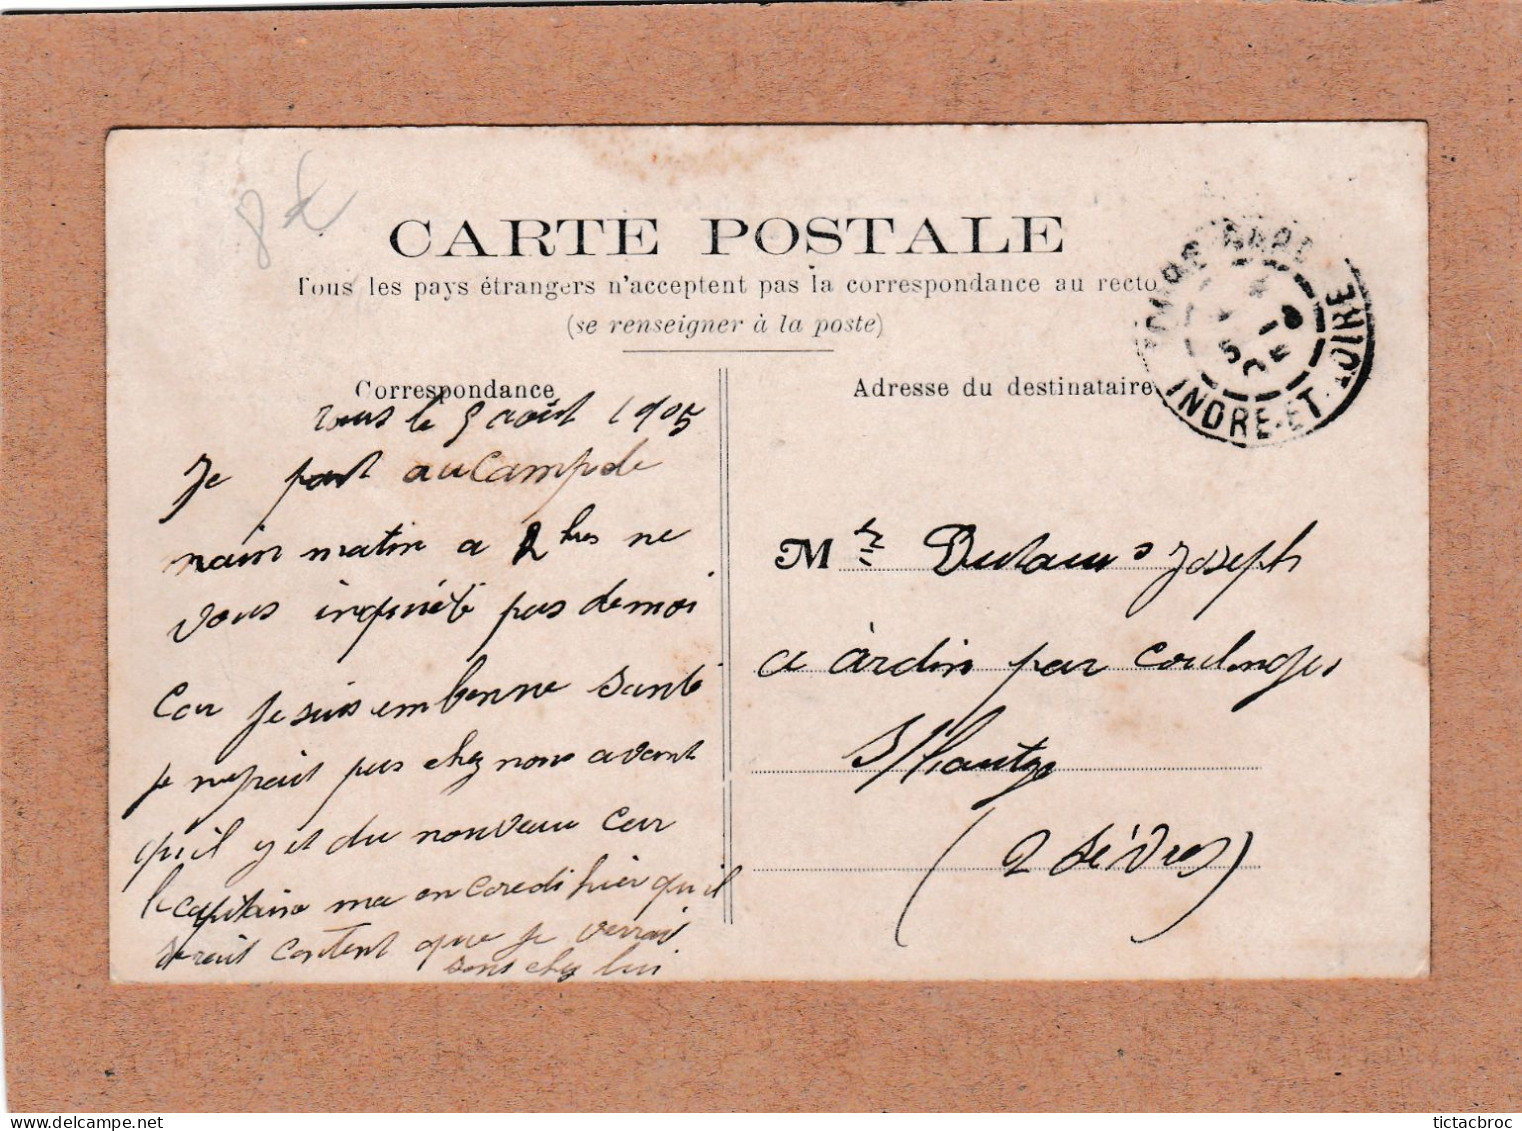 8€
CARTE POSTALE
Tous les pays étrangers n'acceptent pas la correspondance au recto
(se renseigner à la poste)
Correspondance
tours le 9 août 1905
Je part au Camp de
main matin a 2 hres ne
vous inquiété pas de moi
Car Je suis em bonne Santé
je nepait pas chez nous avant
qu'il y et du nouveau Car
le capitaine ma encoredi hier qu'il
serait content que je verrais
sous chez lui
Adresse du destinataire
TOURS GARE
INDRE-ET-LOIRE
M Joseph
a àrdin par coulonges
S/lautze
(2 Sèvres)
tictacbroc